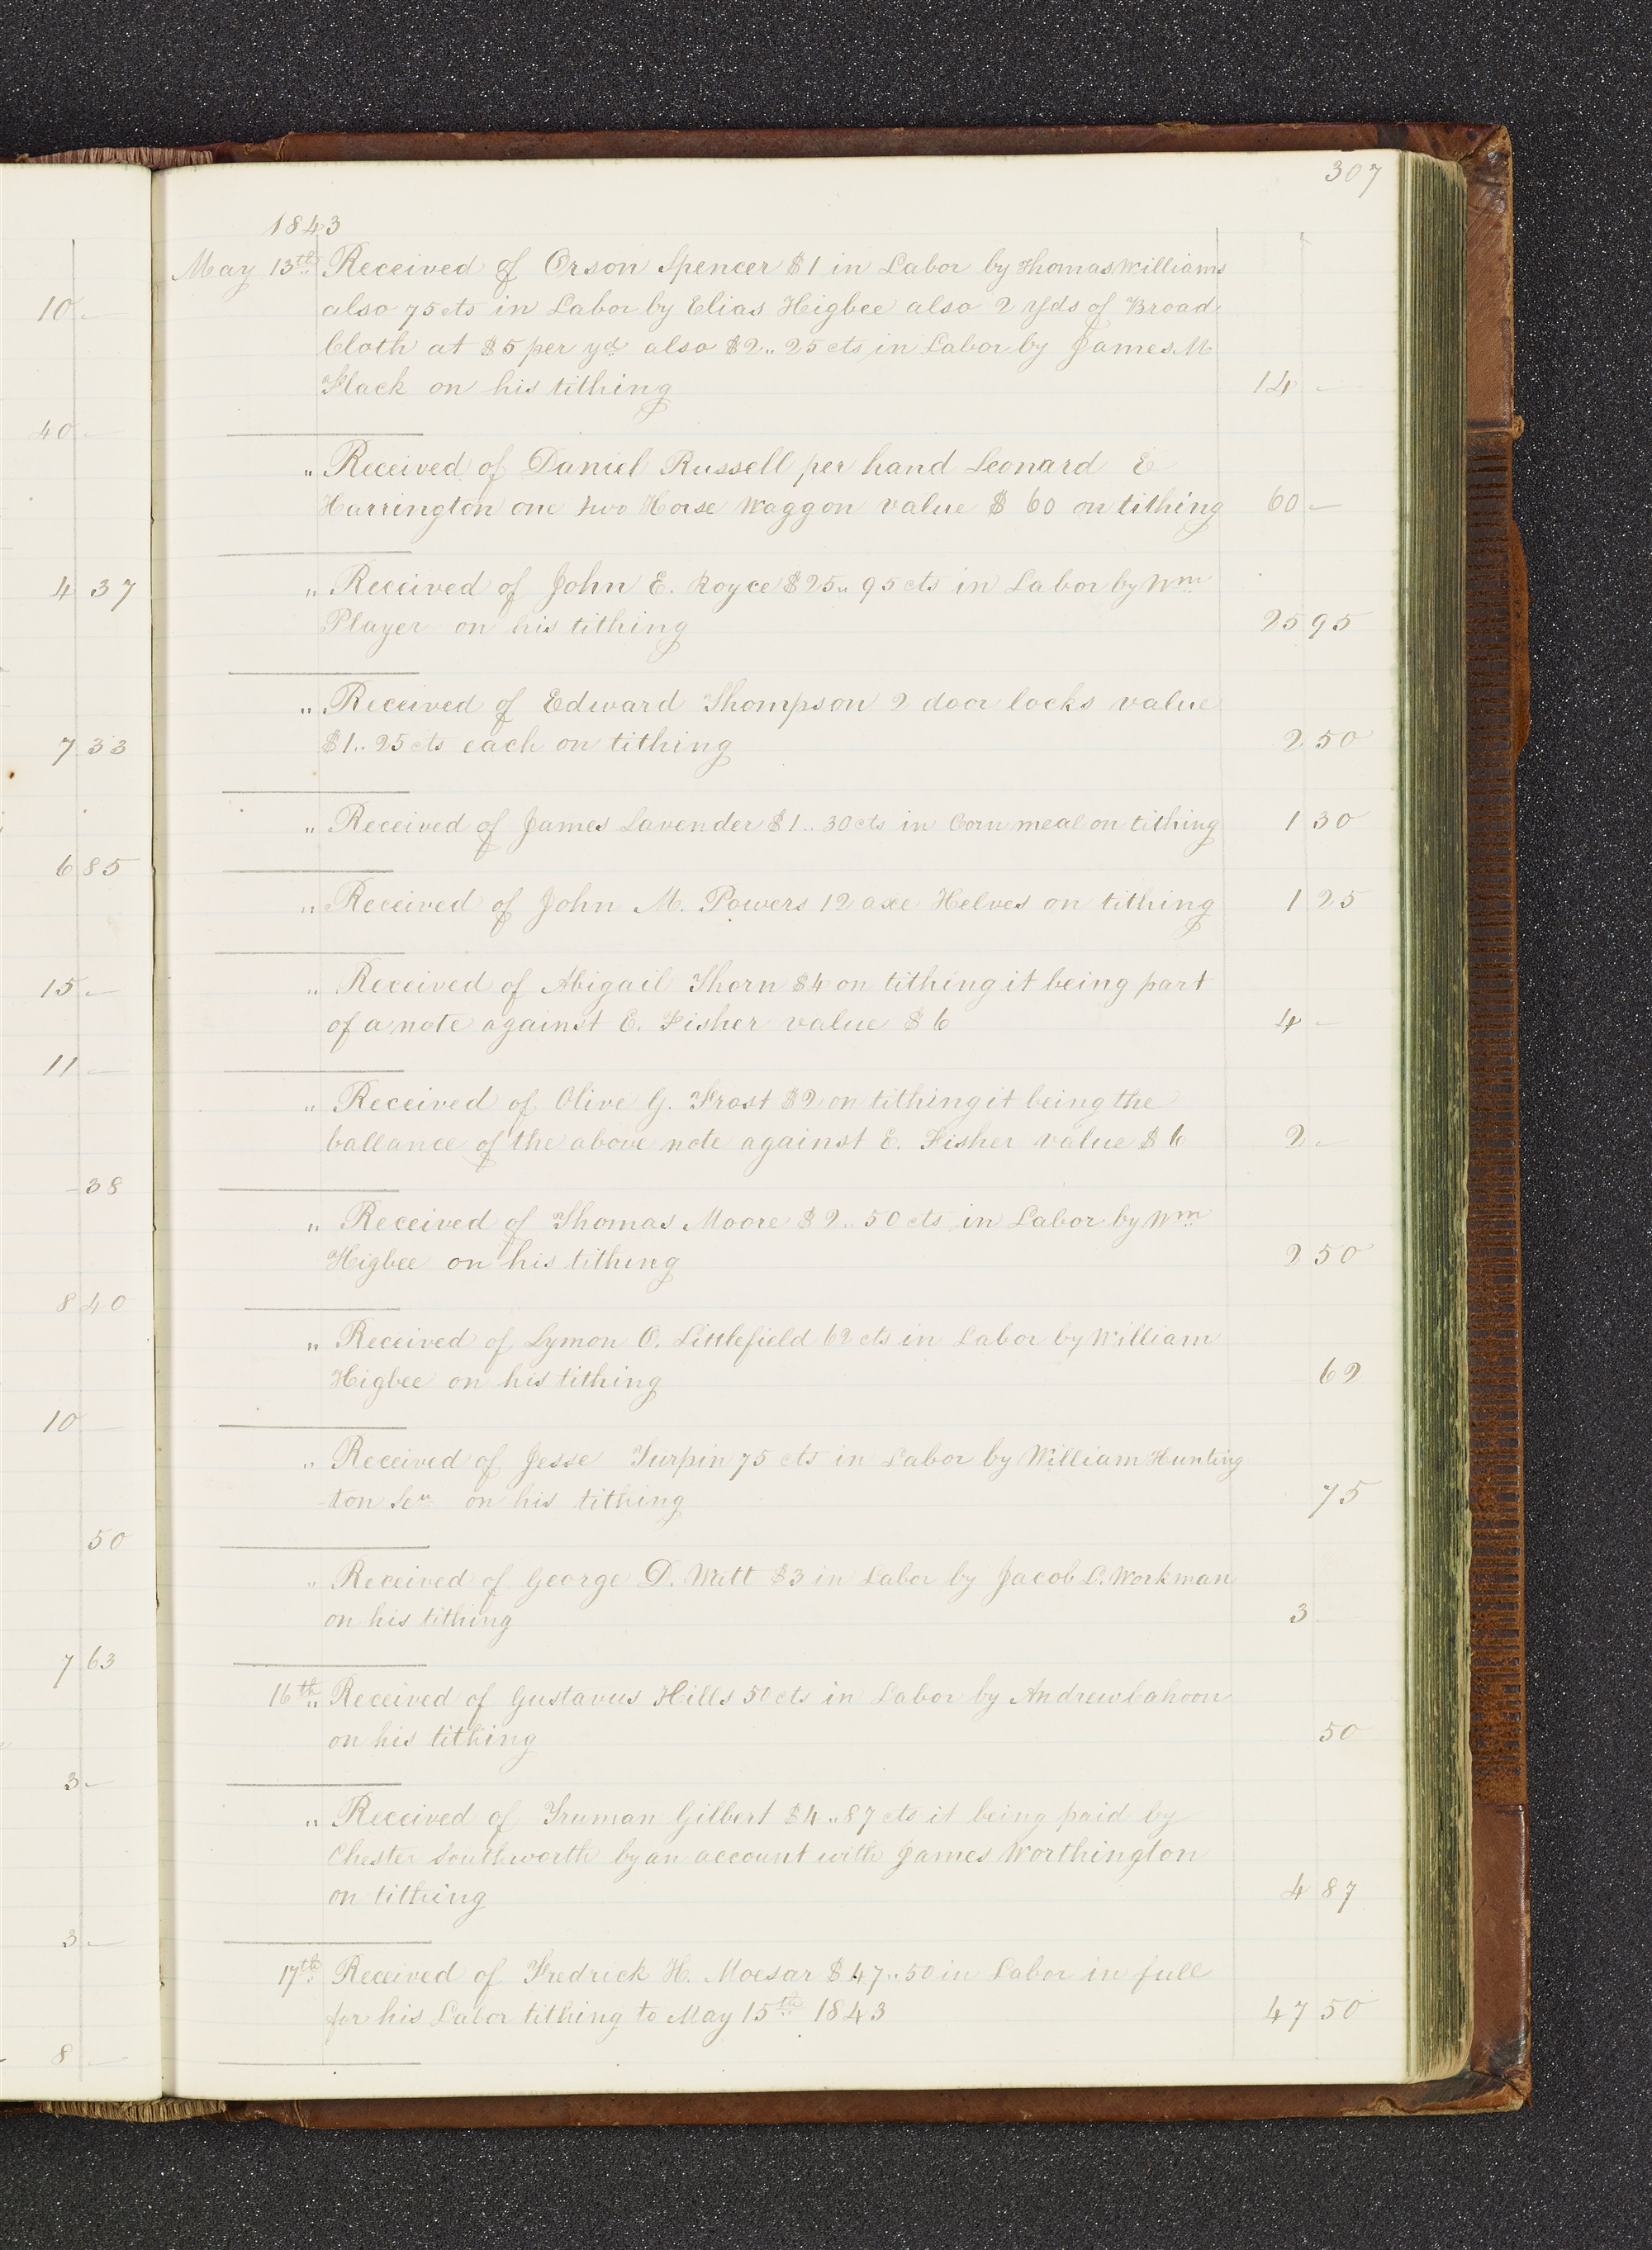 307
1843
May 13th Received of Orson Spencer $1 in Labor by Thomas Williams
also 75 cts in Labor by Elias Higbee also 2 Yds of Broad
Cloth at $5 per yd. also $2.. 25 cts in Labor by James M
Flack on his tithing 14 —
" Received of Daniel Russell per hand Leonard E
Harrington one two Horse Waggon value $ 60 on tithing 60 —
" Received of John E. Royce $25.. 95 cts in Labor by Wm.
Player on his tithing 25 95
" Received of Edward Thompson 2 door locks value
$1.. 25 cts each on tithing 2 50
" Received of James Lavender $1.. 30 cts in Corn meal on tithing 1 30
" Received of John M. Powers 12 axe Helves on tithing 1 25
" Received of Abigail Thorn $4 on tithing it being part
of a note against E. Fisher value $ 6 4 —
" Received of Olive G. Frost $2 on tithing it being the
ballance of the above note against E. Fisher value $ 6 2 —
" Received of Thomas Moore $ 2.. 50 cts in Labor by Wm.
Higbee on his tithing 2 50
" Received of Lymon O. Littlefield 62 cts in Labor by William
Higbee on his tithing 62
" Received of Jesse Turpin 75 cts in Labor by William Hunting
-ton Senr on his tithing 75
" Received of George D. Watt $3 in Labor by Jacob L. Workman
on his tithing 3 —
16th " Received of Gustavus Hills 50 cts in Labor by Andrew Cahoon
on his tithing 50
" Received of Truman Gilbert $4.. 87 cts it being paid by
Chester Southworth by an account with James Worthington
on tithing 4 87
17th Received of Fredrick H. Moesar $ 47.. 50 in Labor in full
for his Labor tithing to May 15th 1843 47 50
10 —
40 —
4 37
7 33
6 85
15 —
11 —
- 38
8 40
10 —
50
7 63
3 —
3 —
8 —